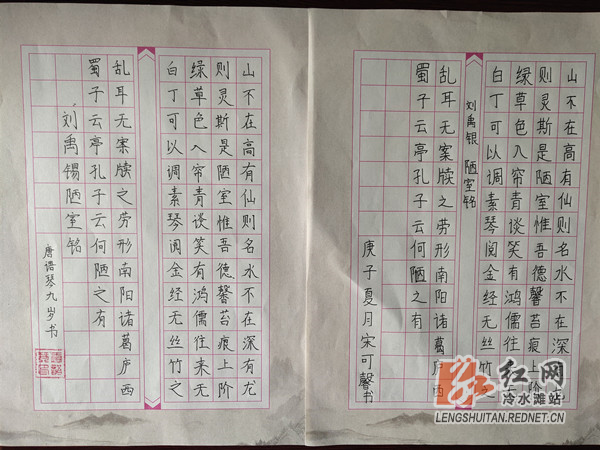 山不在高有仙则名水不在深
则灵斯是陋室惟吾德馨苔痕上阶
绿草色入帘青谈笑有鸿儒往
白丁可以调素琴阅金经无丝竹之
刘禹银 陋室铭
乱耳无案牍之劳形南阳诸葛庐西
蜀子云亭孔子云何陋之有
庚子夏月宋可馨书
山不在高有仙则名水不在深有龙
则灵斯是陋室惟吾德馨苔痕上阶
绿草色入帘青谈笑有鸿儒往来无
白丁可以调素琴阅金经无丝竹之
乱耳无案牍之劳形南阳诸葛庐西
蜀子云亭孔子云何陋之有
刘禹锡陋室铭
唐语琴九岁书
红网
冷水滩站
LENGSHUITAN.REDNET.CN